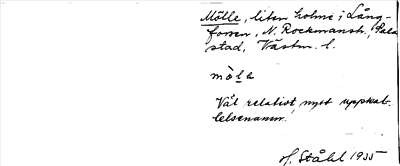 Mölle, liten holme i Lång-
forsen, N. Rockmansh., Sala
stad, Västm. l.
mòlɛ
Väl relativt nytt uppkal-
lelsenamn.
H. Ståhl 1935